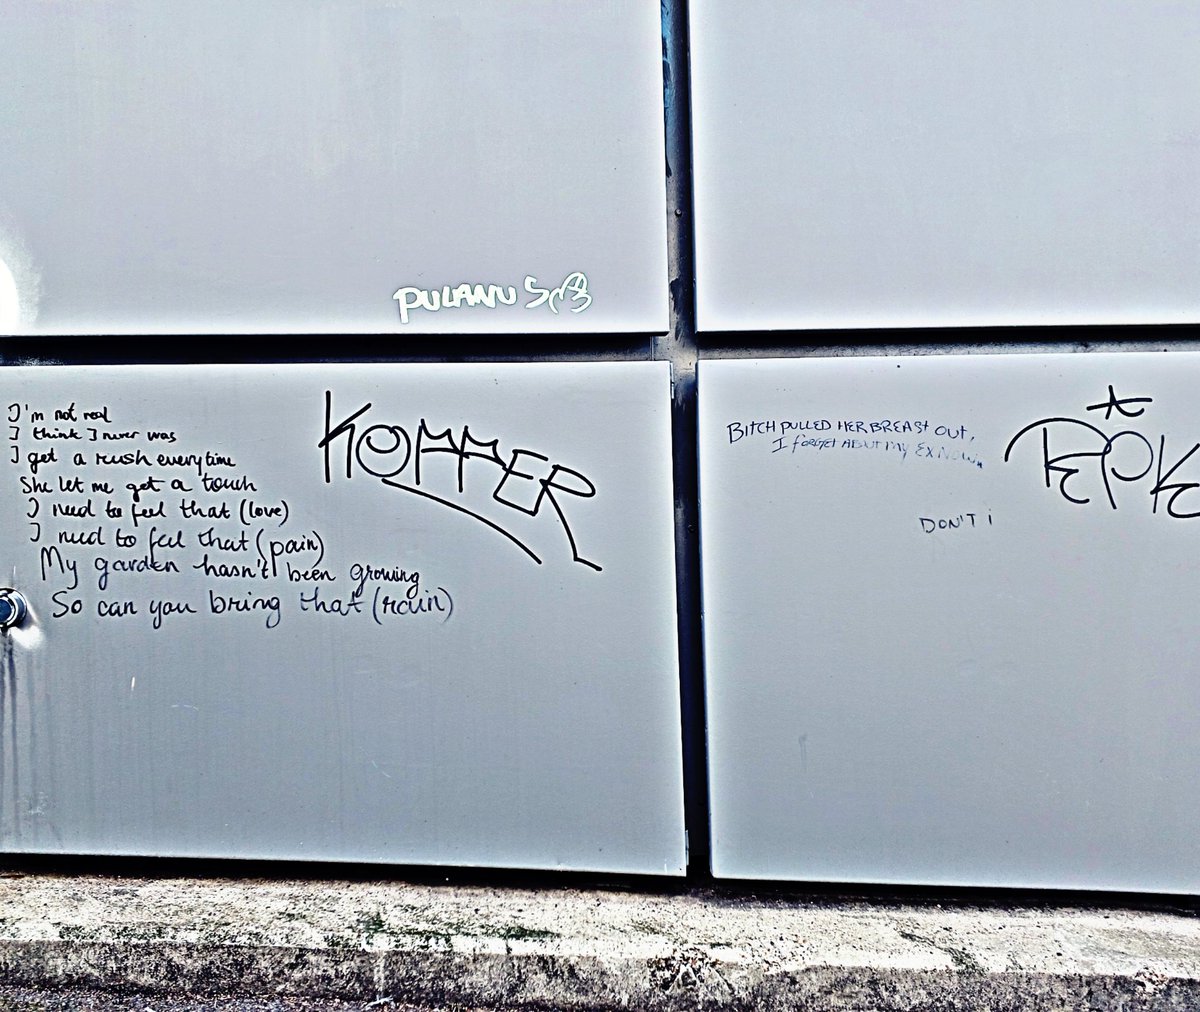 PULANU
I'm not real
I think I never was
I get a rush everytime
She let me get a touch
I need to feel that (love)
I need to feel that (pain)
My garden hasn't been growing
So can you bring that (rain)
KOMPER
BITCH PULLED HER BREAST OUT,
I FORGET ABUT MY EX NOW
DON'T i